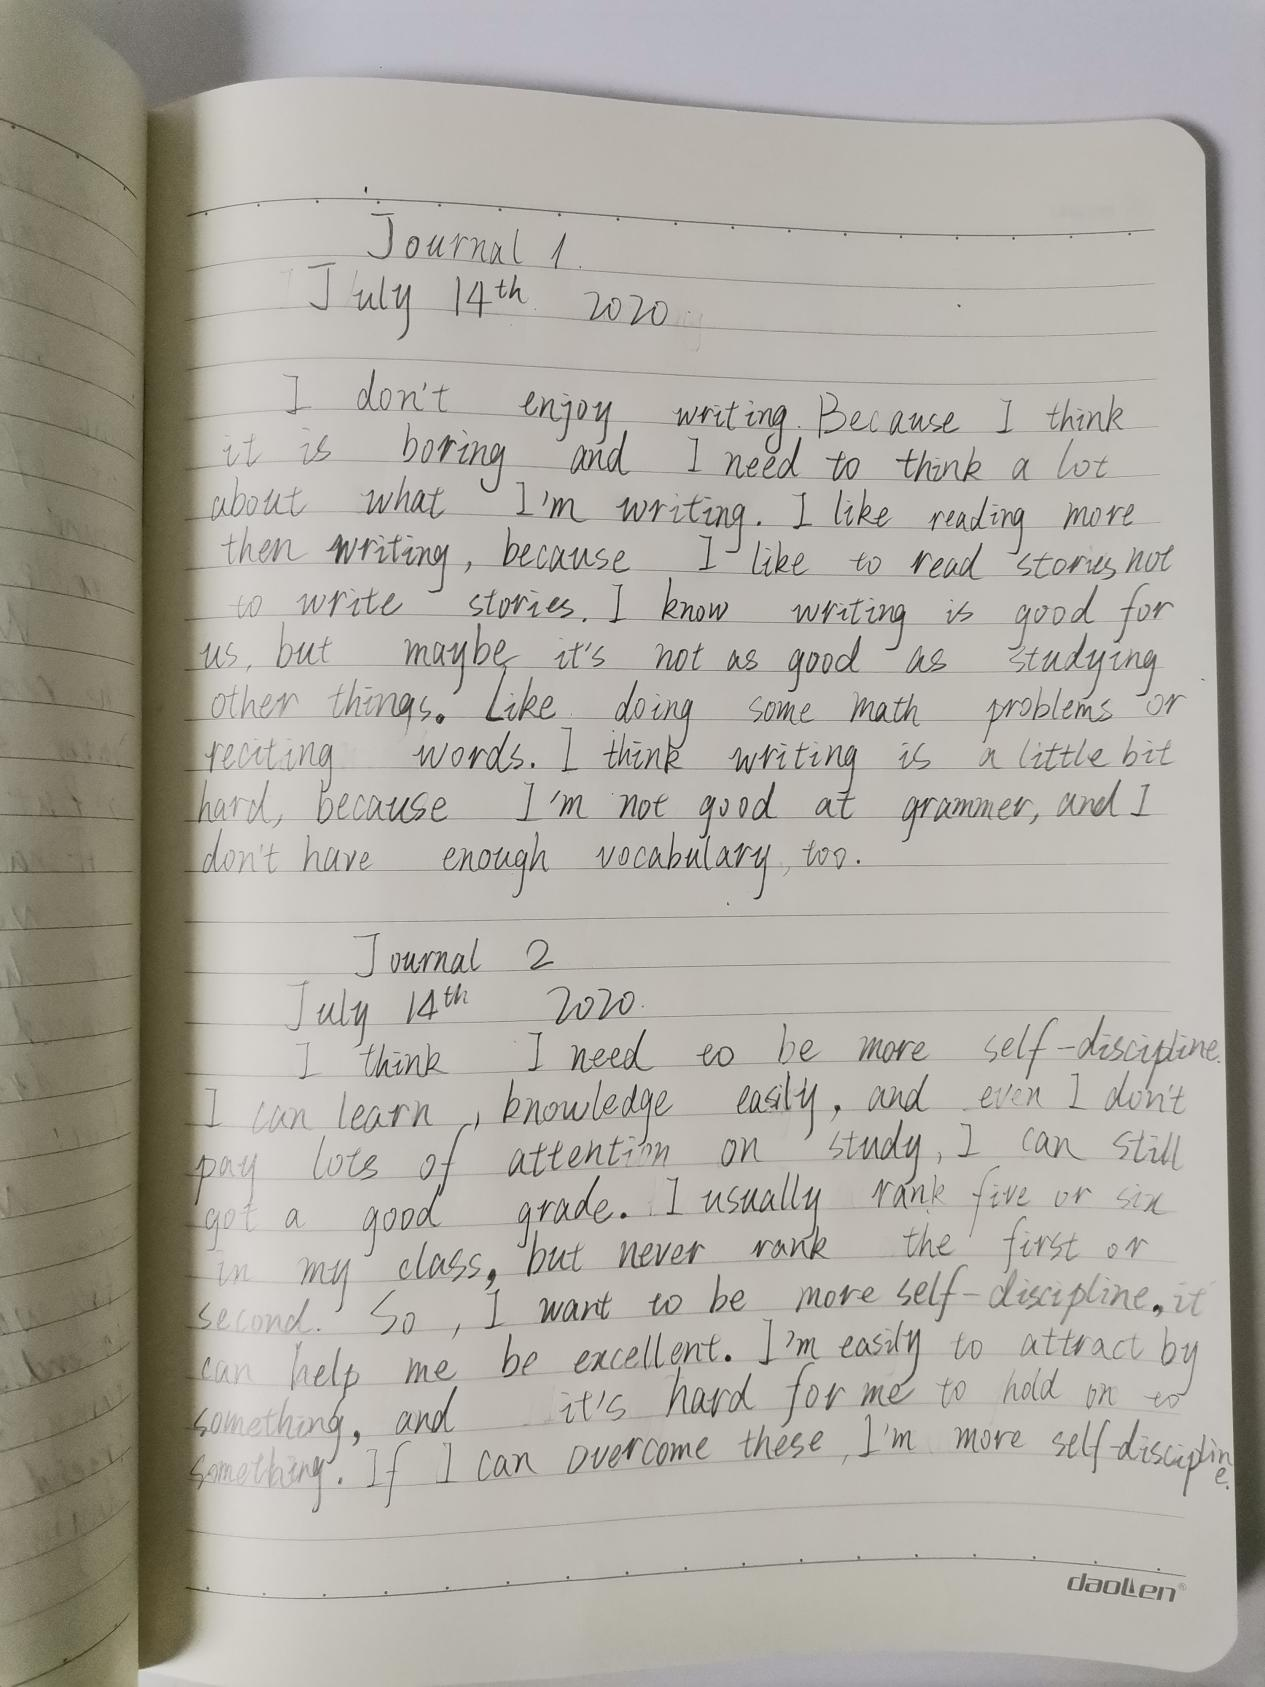 Journal 1.
July 14th 2020
I don't enjoy writing. Because I think
it is boring and I need to think a lot
about what I'm writing. I like reading more
then writing, because I like to read stories not
to write stories. I know writing is good for
us, but maybe it's not as good as studying
other things. Like doing some math problems or
reciting words. I think writing is a little bit
hard, because I'm not good at grammer, and I
don't have enough vocabulary, too.
Journal 2
July 14th 2020.
I think I need to be more self-discipline.
I can learn, knowledge easily, and even I don't
pay lots of attention on study, I can still
got a good grade. I usually rank five or six
in my class, but never rank the first or
second. So, I want to be more self-discipline, it
can help me be excellent. I'm easily to attract by
something, and it's hard for me to hold on to
something. If I can overcome these, I'm more self-disciplin
e.
daollen